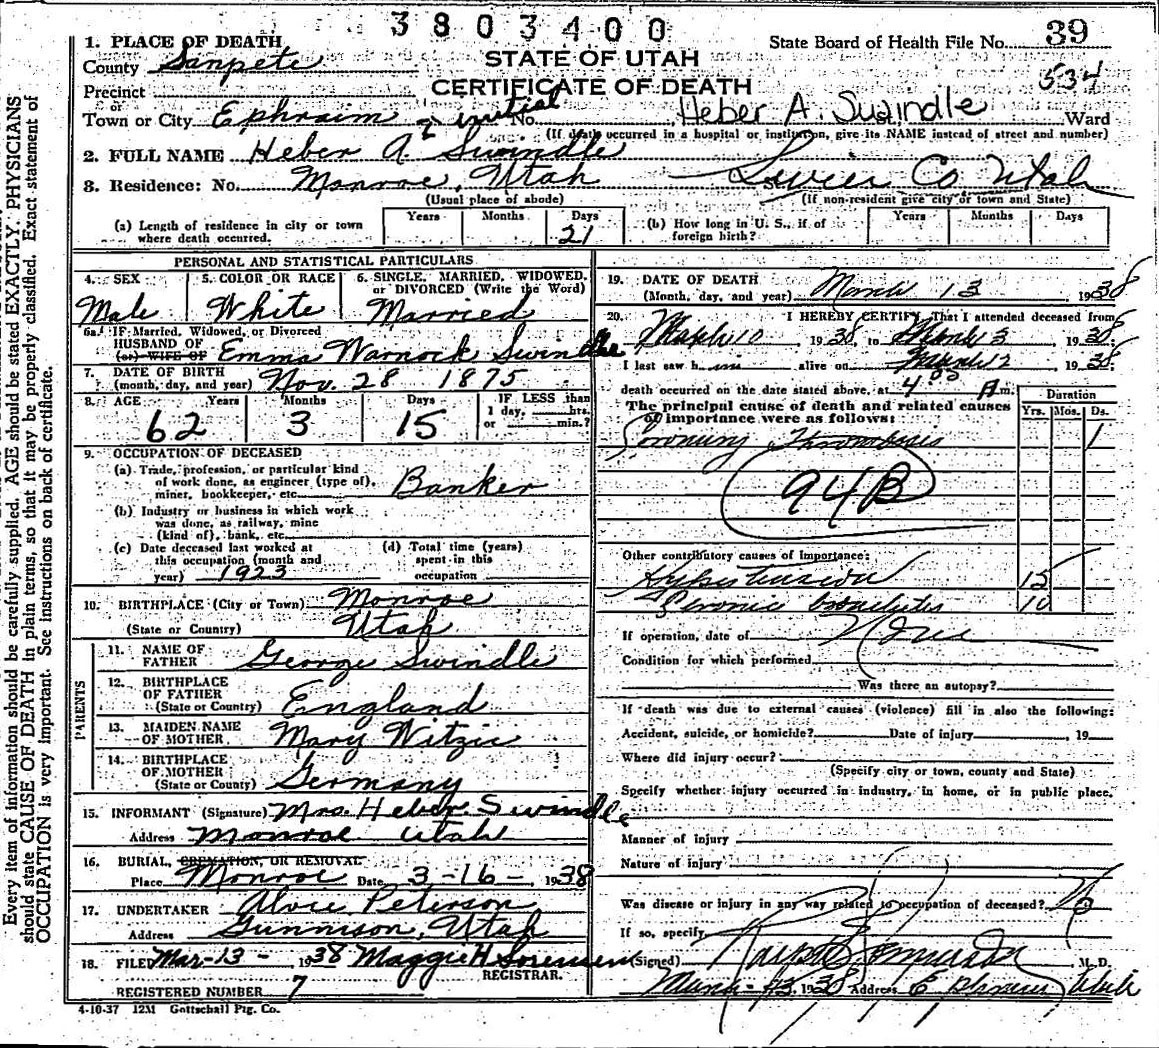 3803400
1. PLACE OF DEATH
State Board of Health File No. 39
County Sanpete
STATE OF UTAH
534
Precinct
CERTIFICATE OF DEATH
or
Town or City Ephraim No. Heber A. Swindle Ward
initial
(If death occurred in a hospital or institution, give its NAME instead of street and number)
2. FULL NAME Heber A. Swindle
3. Residence: No. Monroe, Utah Sevier Co Utah
(Usual place of abode) (If non-resident give city or town and State)
(a) Length of residence in city or town where death occurred. Years Months Days 21
(b) How long in U. S., if of foreign birth? Years Months Days
PERSONAL AND STATISTICAL PARTICULARS
4. SEX Male
5. COLOR OR RACE White
6. SINGLE, MARRIED, WIDOWED, or DIVORCED (Write the Word) Married
6a. IF Married, Widowed, or Divorced
HUSBAND OF
(or) WIFE OF Emma Warnock Swindle
7. DATE OF BIRTH
(month, day, and year) Nov. 28 1875
8. AGE Years 62 Months 3 Days 15 IF LESS than 1 day, hrs. or min.?
9. OCCUPATION OF DECEASED
(a) Trade, profession, or particular kind
of work done, as engineer (type of),
miner, bookkeeper, etc. Banker
(b) Industry or business in which work
was done, as railway, mine
(kind of), bank, etc.
(c) Date deceased last worked at
this occupation (month and
year) 1923
(d) Total time (years)
spent in this
occupation
10. BIRTHPLACE (City or Town) Monroe
(State or Country) Utah
PARENTS
11. NAME OF
FATHER George Swindle
12. BIRTHPLACE
OF FATHER
(State or Country) England
13. MAIDEN NAME
OF MOTHER Mary Witzie
14. BIRTHPLACE
OF MOTHER
(State or Country) Germany
15. INFORMANT (Signature) Mrs. Heber Swindle
Address Monroe Utah
16. BURIAL, CREMATION, OR REMOVAL
Place Monroe Date 3-16-, 1938
17. UNDERTAKER Alvie Peterson
Address Gunnison, Utah
18. FILED Mar-13-, 1938 Maggie H Sorensen
REGISTRAR.
REGISTERED NUMBER 7
4-10-37 12M Gottschall Ptg. Co.
19. DATE OF DEATH
(Month, day, and year) March 13 1938
20. I HEREBY CERTIFY, That I attended deceased from
March 10 1938, to March 3, 1938.
I last saw him alive on March 12, 1938
death occurred on the date stated above, at 4 00 A m.
The principal cause of death and related causes
of importance were as follows:
Duration
Yrs. Mos. Ds.
Coronary Thrombosis 1
94B
Other contributory causes of importance:
Hypertension 15
Chronic bronchitis 10
If operation, date of None
Condition for which performed
Was there an autopsy?
If death was due to external causes (violence) fill in also the following:
Accident, suicide, or homicide? Date of injury , 19
Where did injury occur?
(Specify city or town, county and State)
Specify whether injury occurred in industry, in home, or in public place.
Manner of injury
Nature of injury
Was disease or injury in any way related to occupation of deceased? No
If so, specify
(Signed) M. D.
March 1938 Address Ephraim Utah
Every item of information should be carefully supplied. AGE should be stated EXACTLY. PHYSICIANS
should state CAUSE OF DEATH in plain terms, so that it may be properly classified. Exact statement of
OCCUPATION is very important. See instructions on back of certificate.